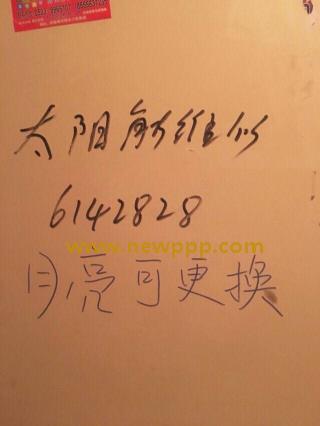 太阳能维修
6142828
www.newppp.com
月亮可更换